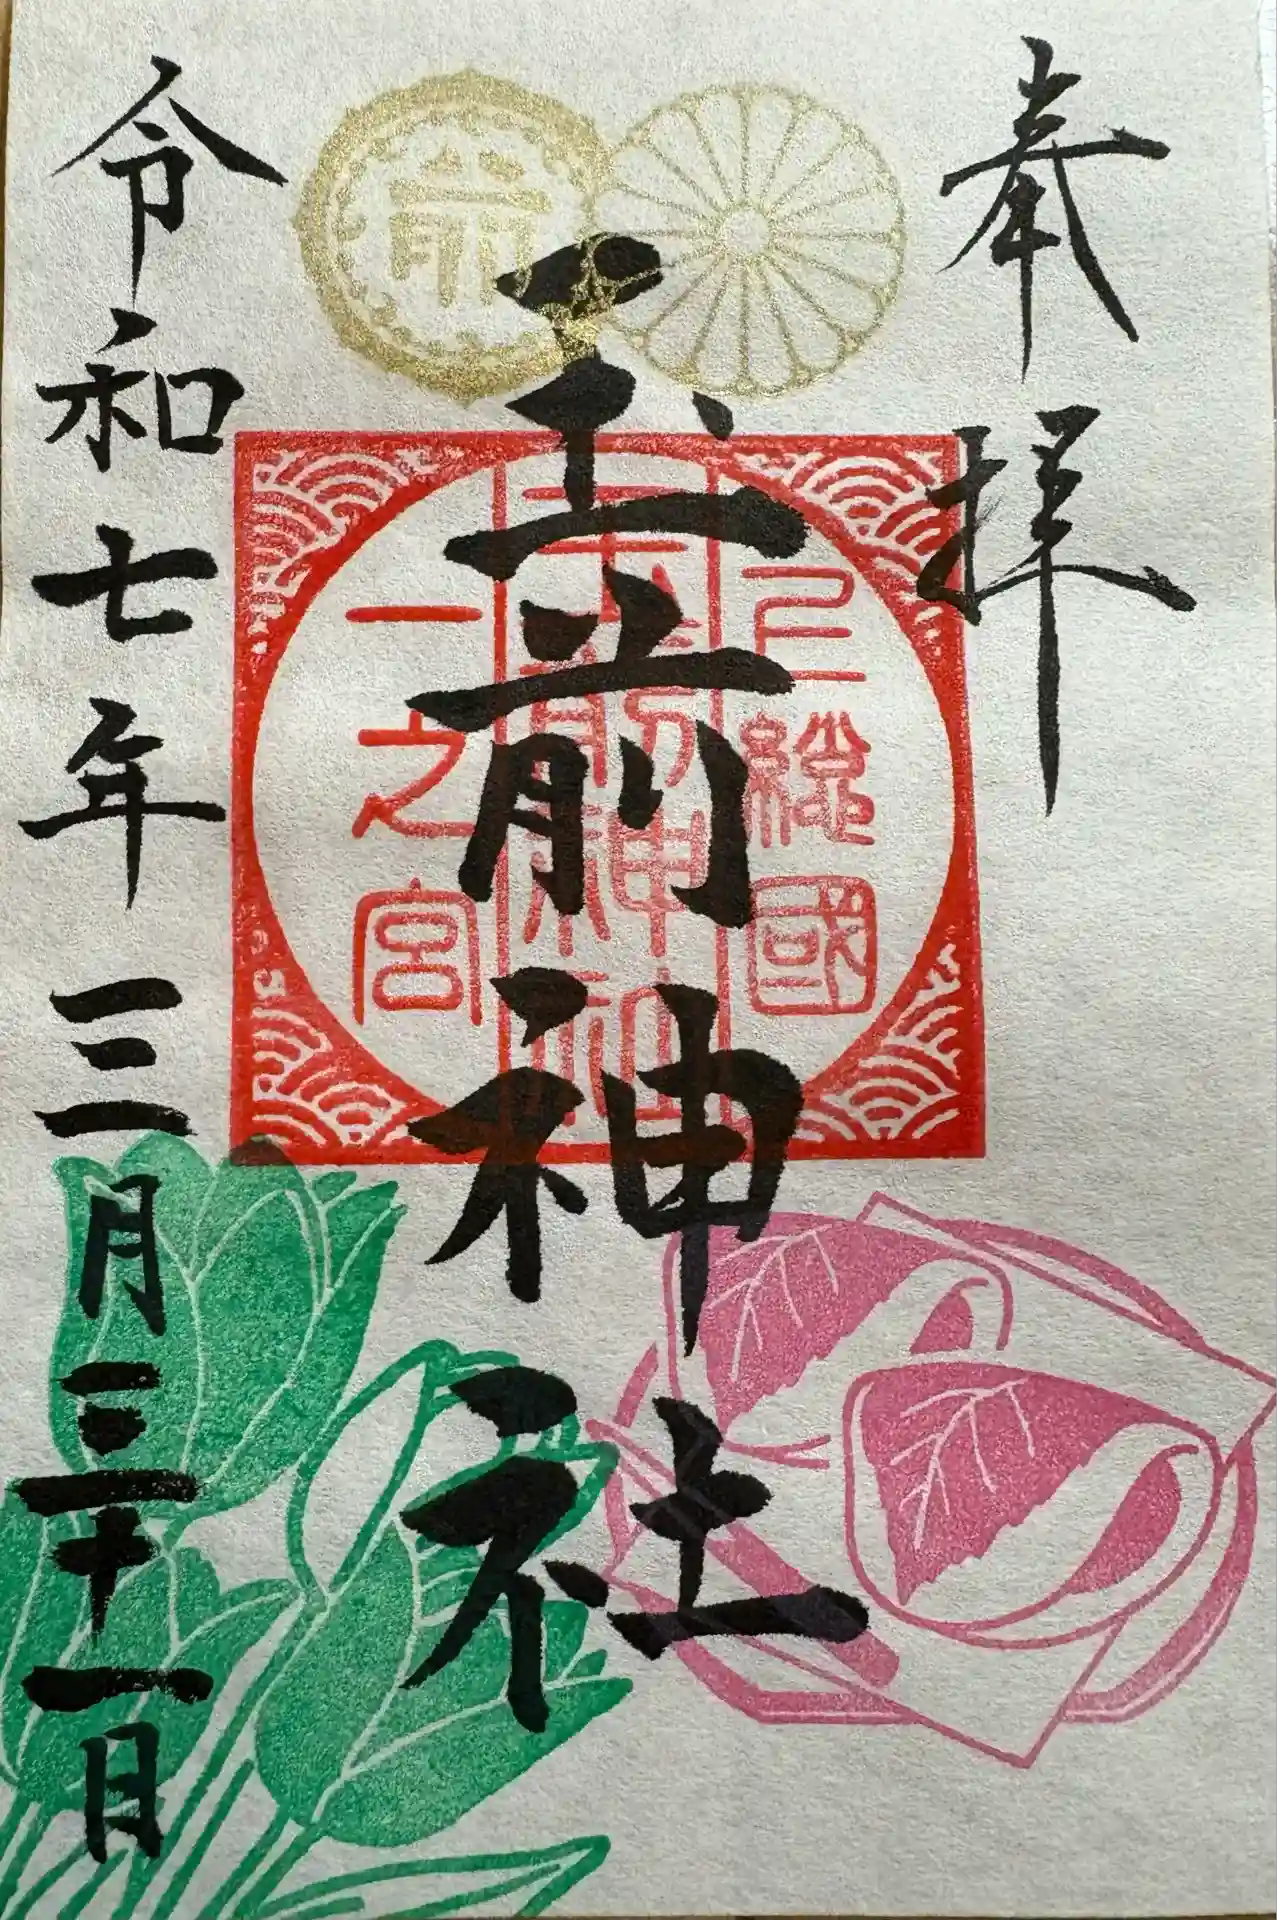 奉拝
前
玉前神社
上總國
玉前神社
一之宮
令和七年三月三十一日